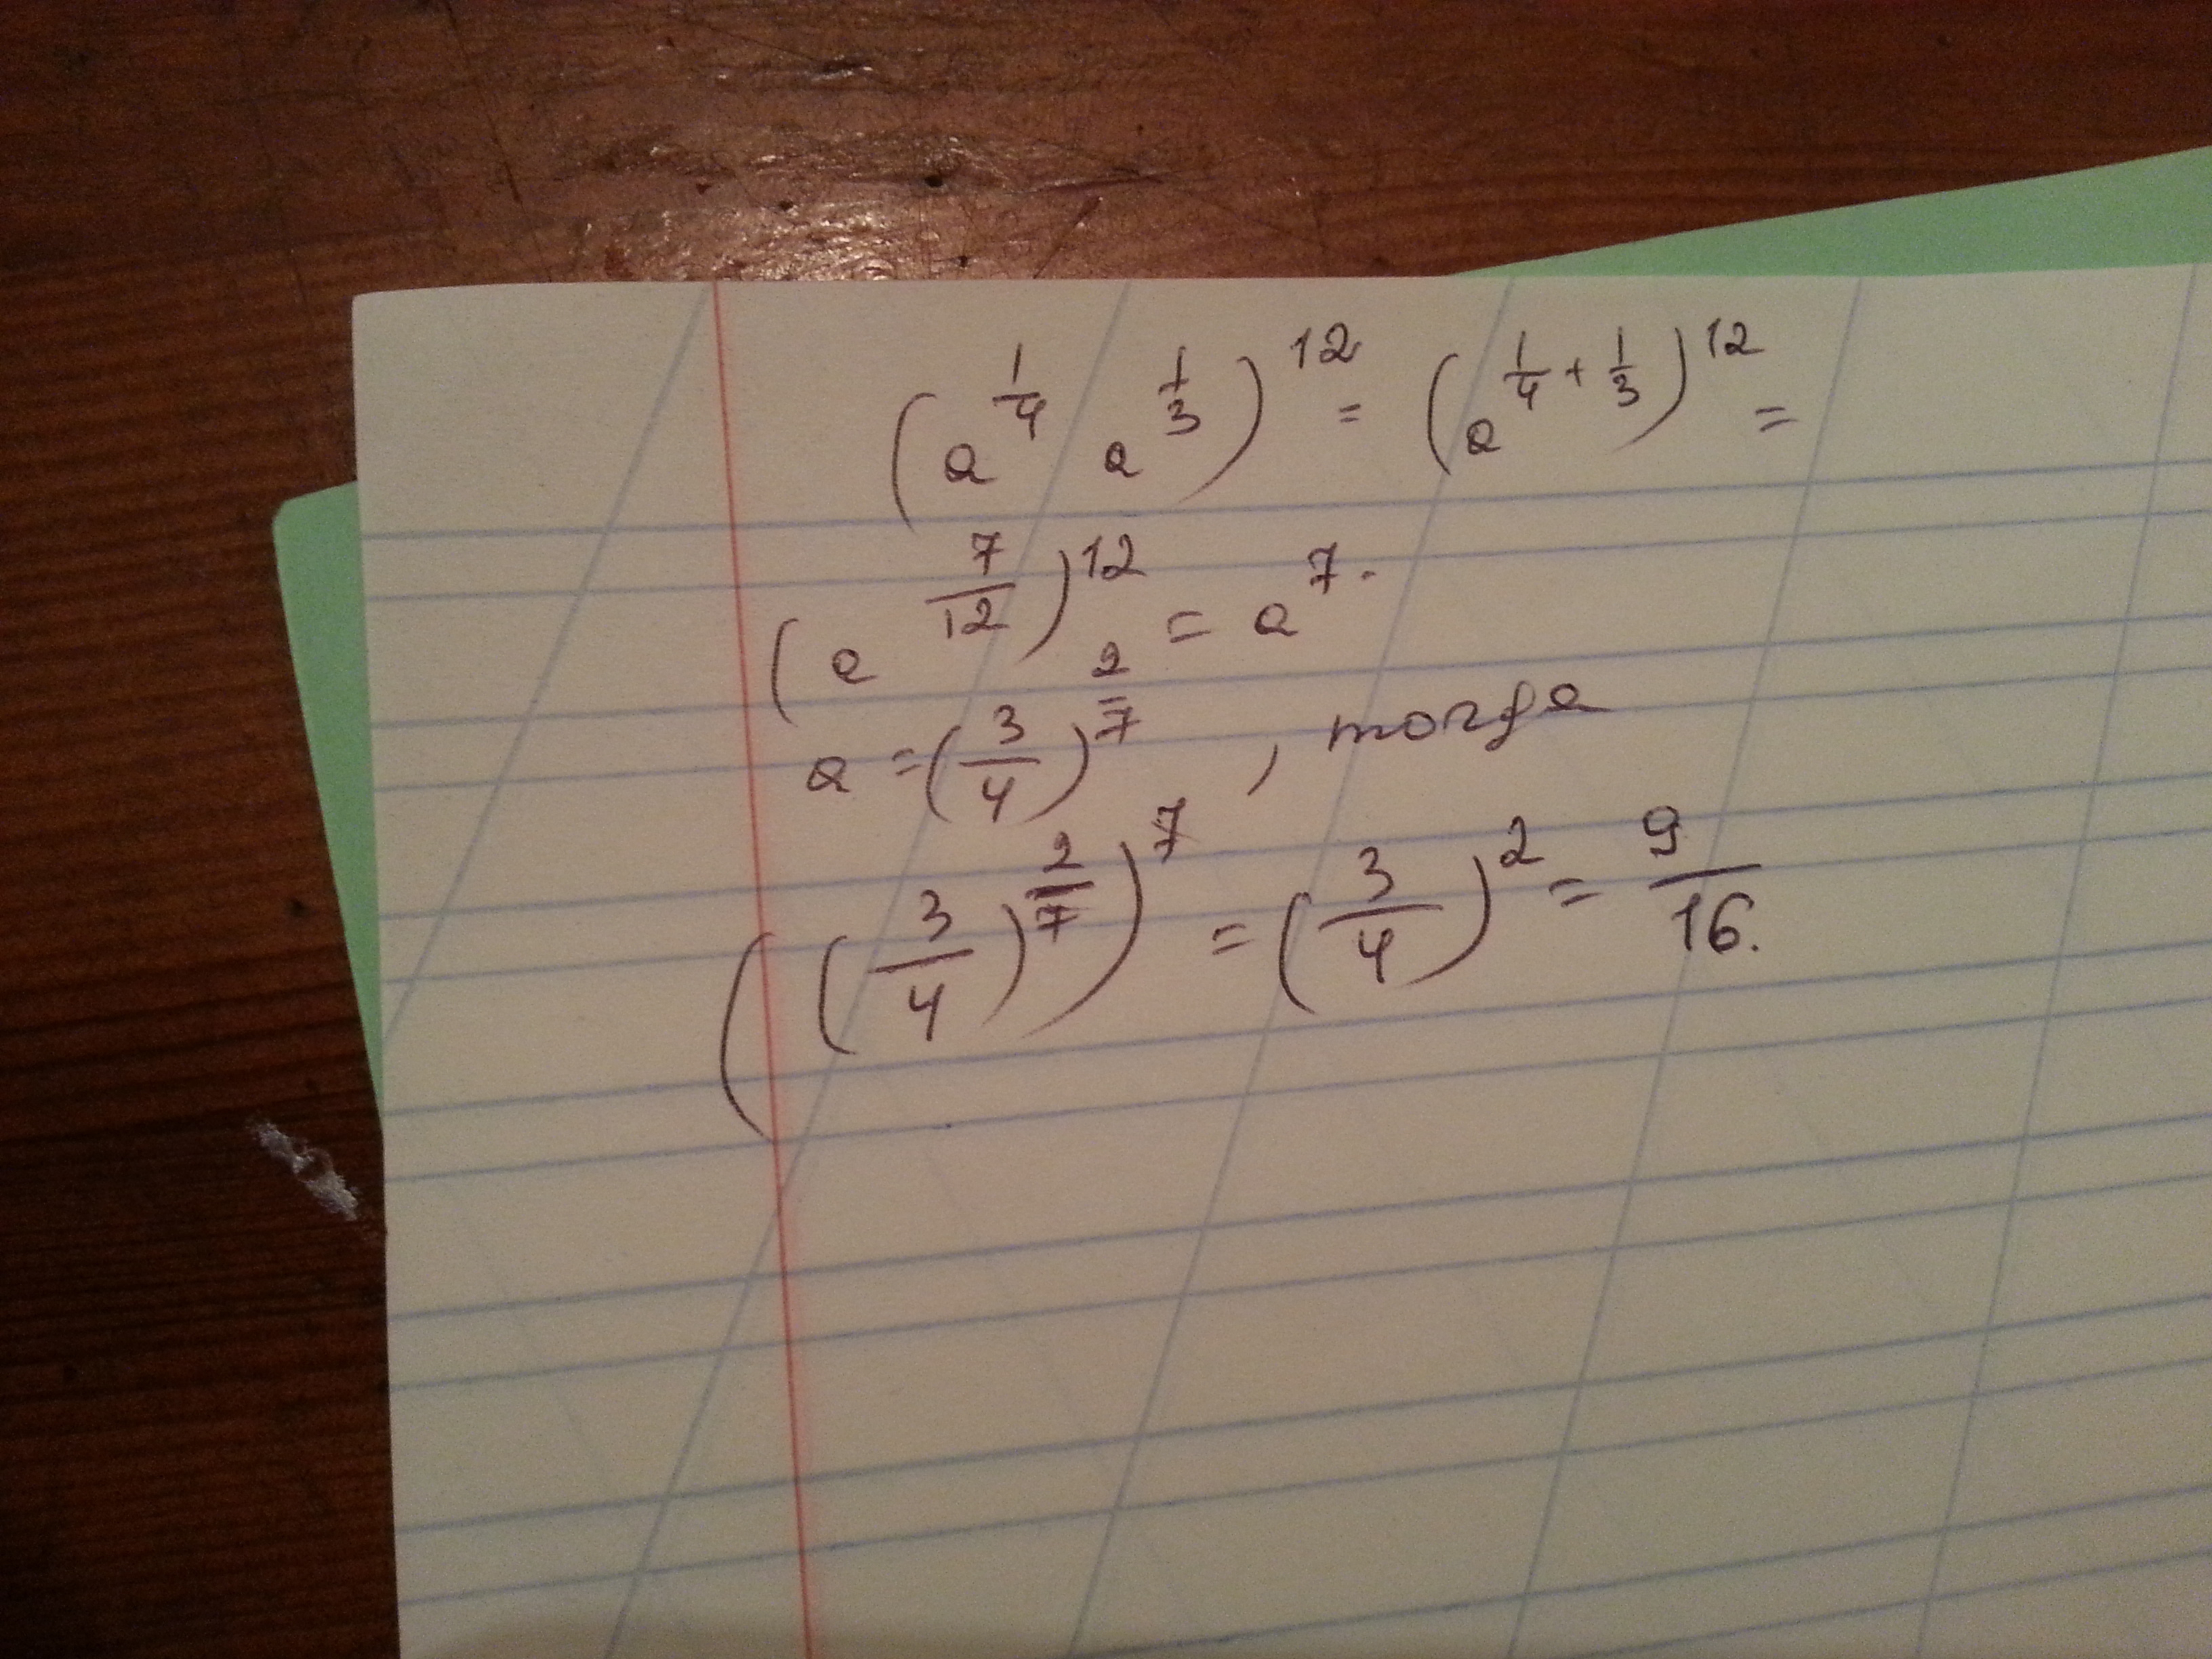 (a^{1/4} a^{1/3})^{12} = (a^{1/4 + 1/3})^{12} =
(a^{7/12})^{12} = a^7.
a = (3/4)^{2/7}, тогда
((3/4)^{2/7})^7 = (3/4)^2 = 9/16.